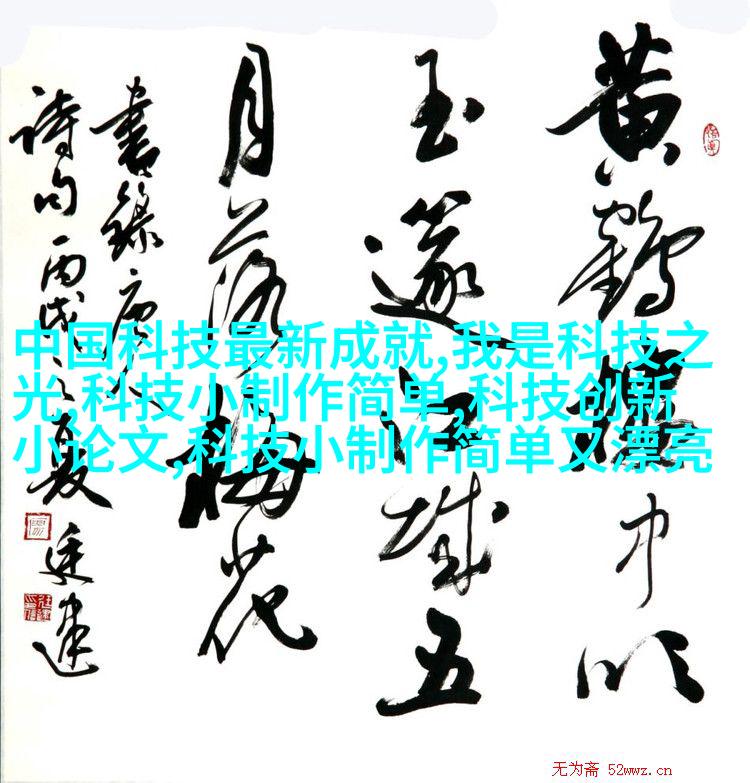 黄鹤楼中吹
玉篴江城五
月落梅花
書録唐人
诗句丙戌之夏
中国科技最新成就,我是科技之
光,科技小制作简单,科技创新
小论文,科技小制作简单又漂亮
无为斋 52wwz.cn